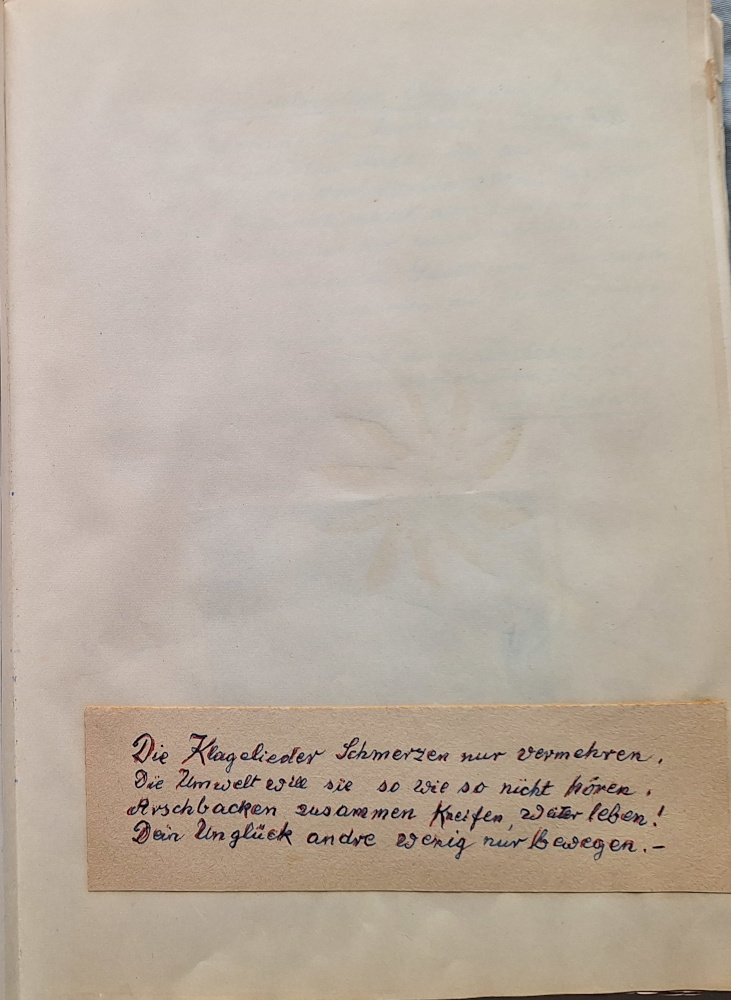 Die Klagelieder Schmerzen nur vermehren.
Die Umwelt will sie so wie so nicht hören.
Arschbacken zusammen Kneifen, weiter leben!
Dein Unglück andre wenig nur bewegen.–